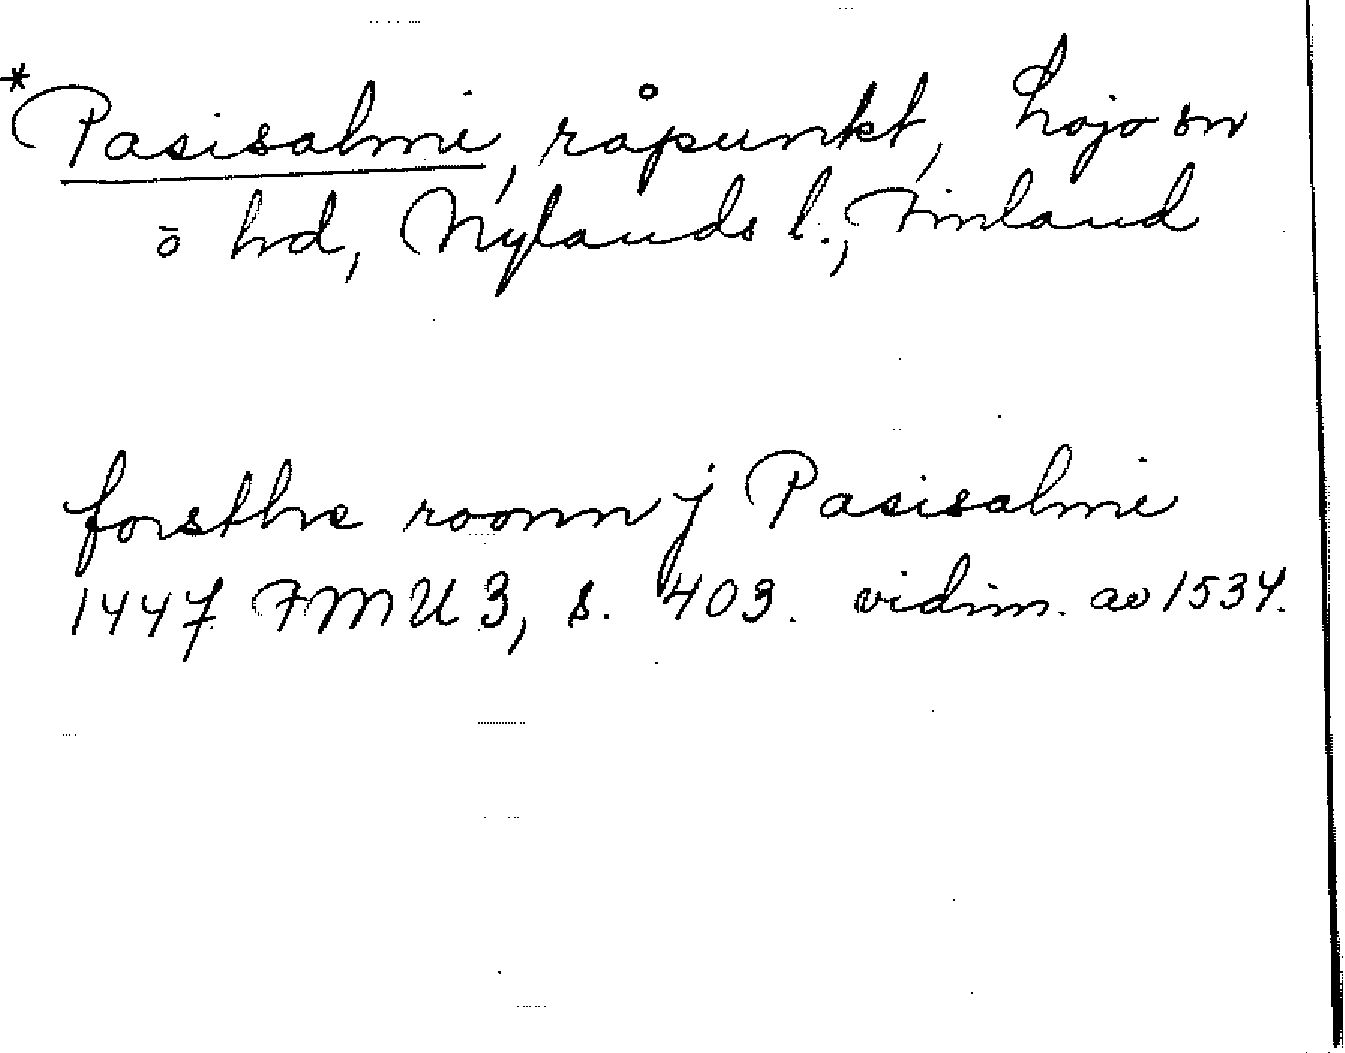 *Pasisalmi, råpunkt, Lojo sn
o hd, Nylands l., Finland
forsthe roonn j Pasisalmi
1447 FMU 3, s. 403. vidim. av 1534.